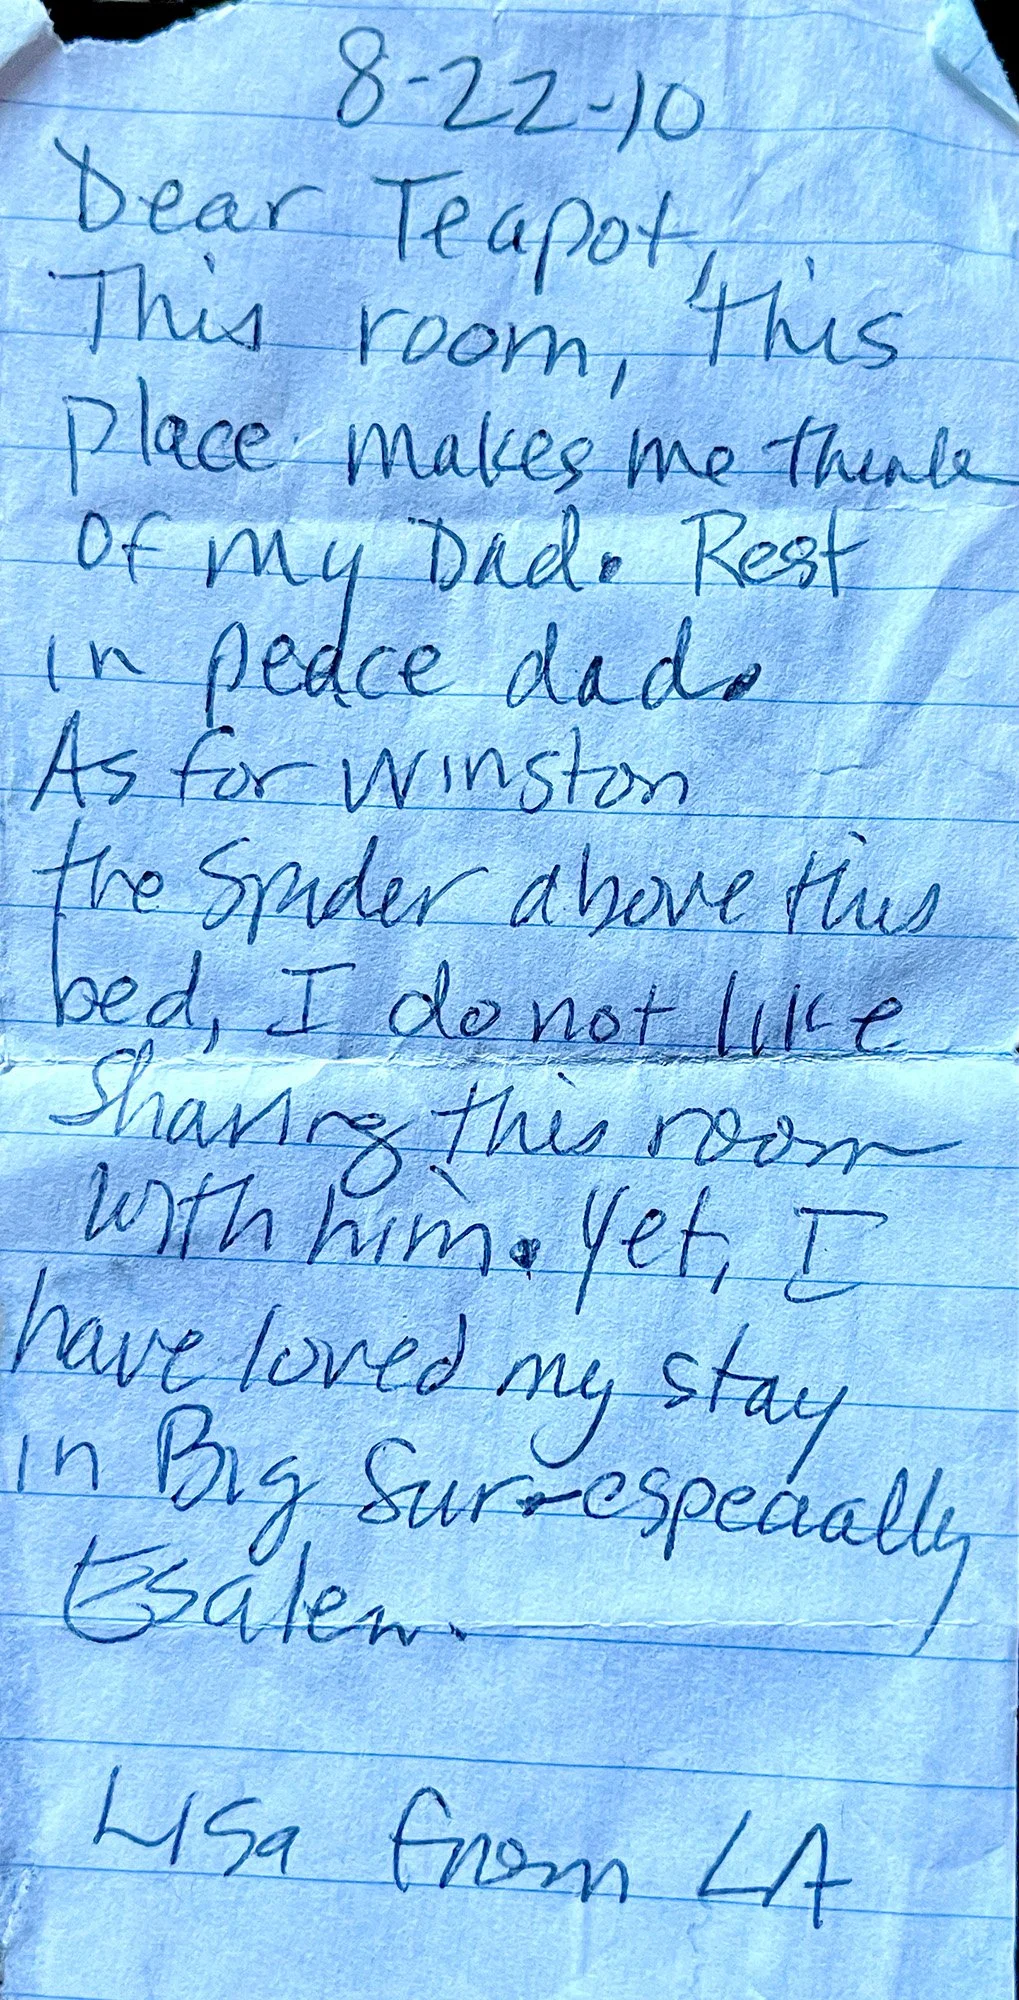 8-22-10
Dear Teapot,
This room, this
place makes me think
of my Dad. Rest
in peace dad.
As for Winston
the Spider above this
bed, I do not like
Sharing this room
with him. Yet, I
have loved my stay
in Big Sur-especially
Esalen.
Lisa from LA